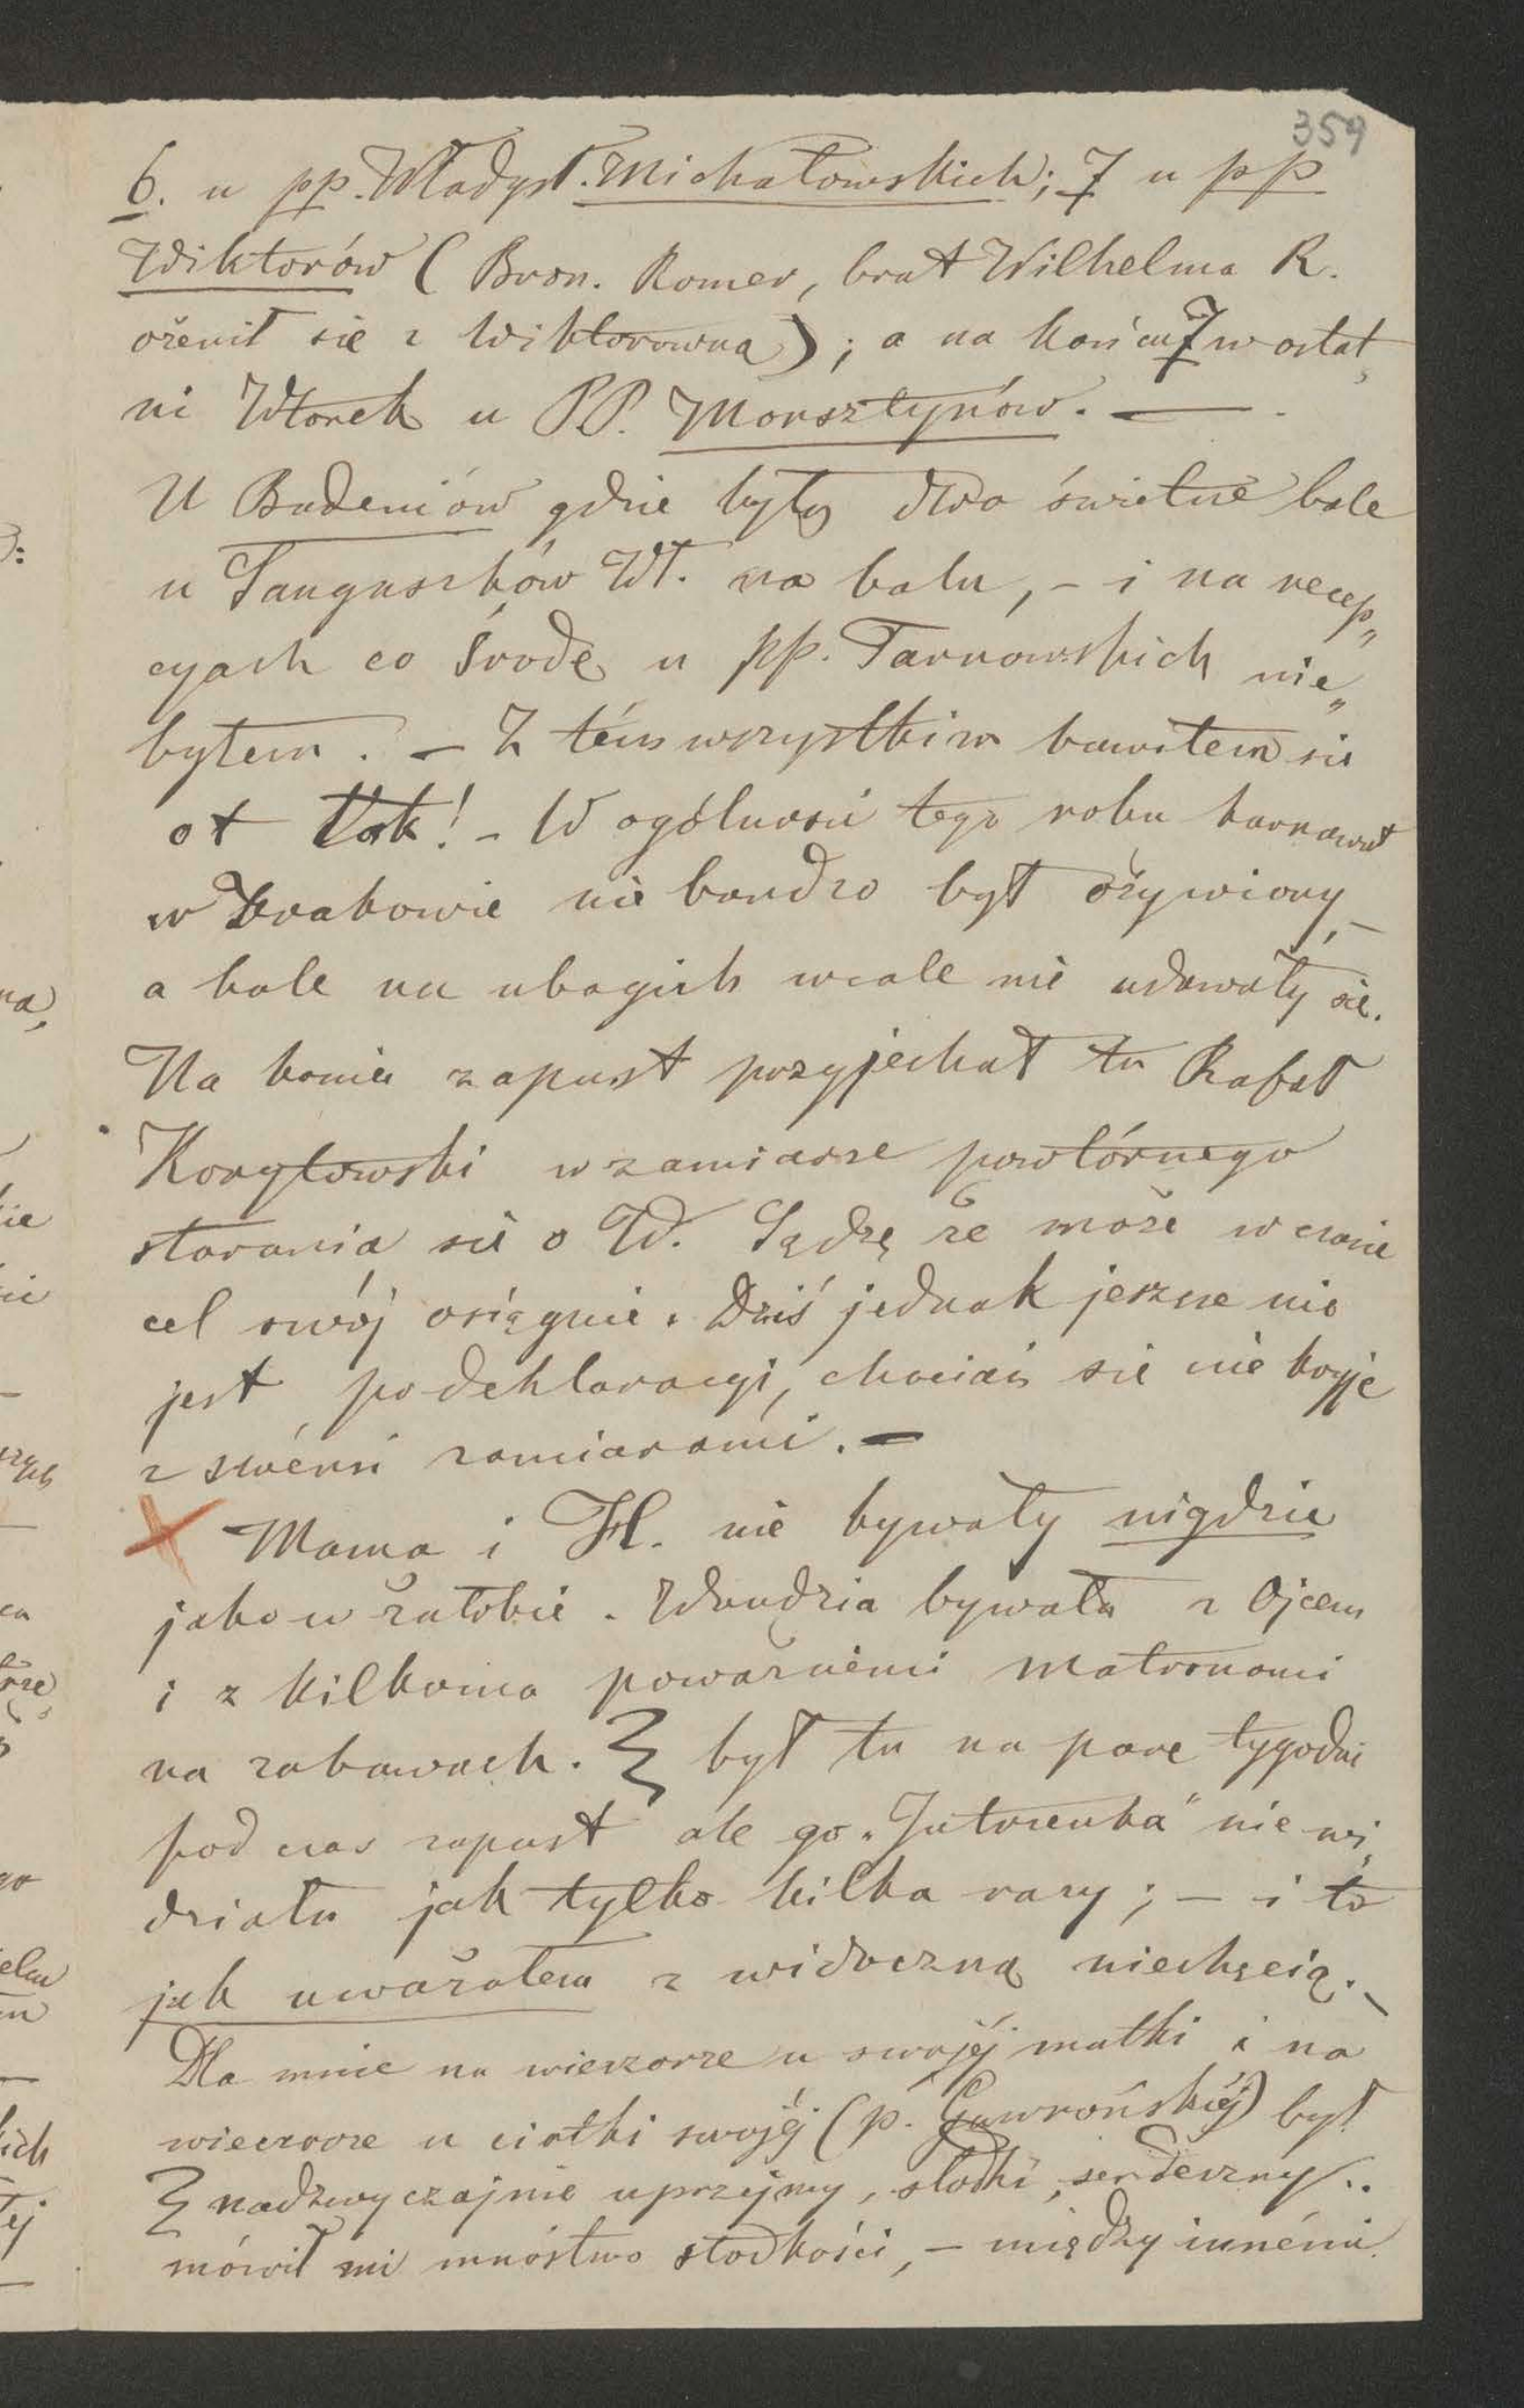 359
6. u pp. Władysł. Michałowskich; 7 u pp
Wiktorów (Bron. Romer, brat Wilhelma R.
ożenił się z Wiktorowną); a na końcu 7 w ostat„
ni Wtorek u PP. Morsztynów. —
U Badeniów gdzie były dwa świetne bale
u Sanguszków Wł. na balu, – i na recep„
cyach co Środę u pp. Tarnowskich nie„
byłem. – Z tém wszystkim bawiłem się
ot tak! – W ogólności tego roku karnawał
w Krakowie nie bardzo był ożywiony, –
a bale na ubogich wcale nie udawały się.
Na koniec zapust przyjechał tu Rafał
Korytowski w zamiarze powtórnego
starania się o W. Sądzę że może w czasie
cel swój osiągnie. Dziś jednak jeszcze nie
jest po deklaracyi, chociaż się nie kryje
z swémi zamiarami. —
Mama i H. nie bywały nigdzie
jako w żałobie. Wandzia bywała z Ojcem
i z kilkoma poważnémi matronami
na zabawach. był tu na parę tygodni
pod czas zapust ale go „Jutrzenka" nie wi„
działa jak tylko kilka razy; – i to
jak uważałem z widoczną niechęcią. –
Dla mnie na wieczorze u swojéj matki i na
wieczorze u ciotki swojéj (p. Gawrońskiéj) był
nadzwyczajnie uprzejmy, słodki, serdeczny..
mówił mi mnóstwo słodkości, – między innémi